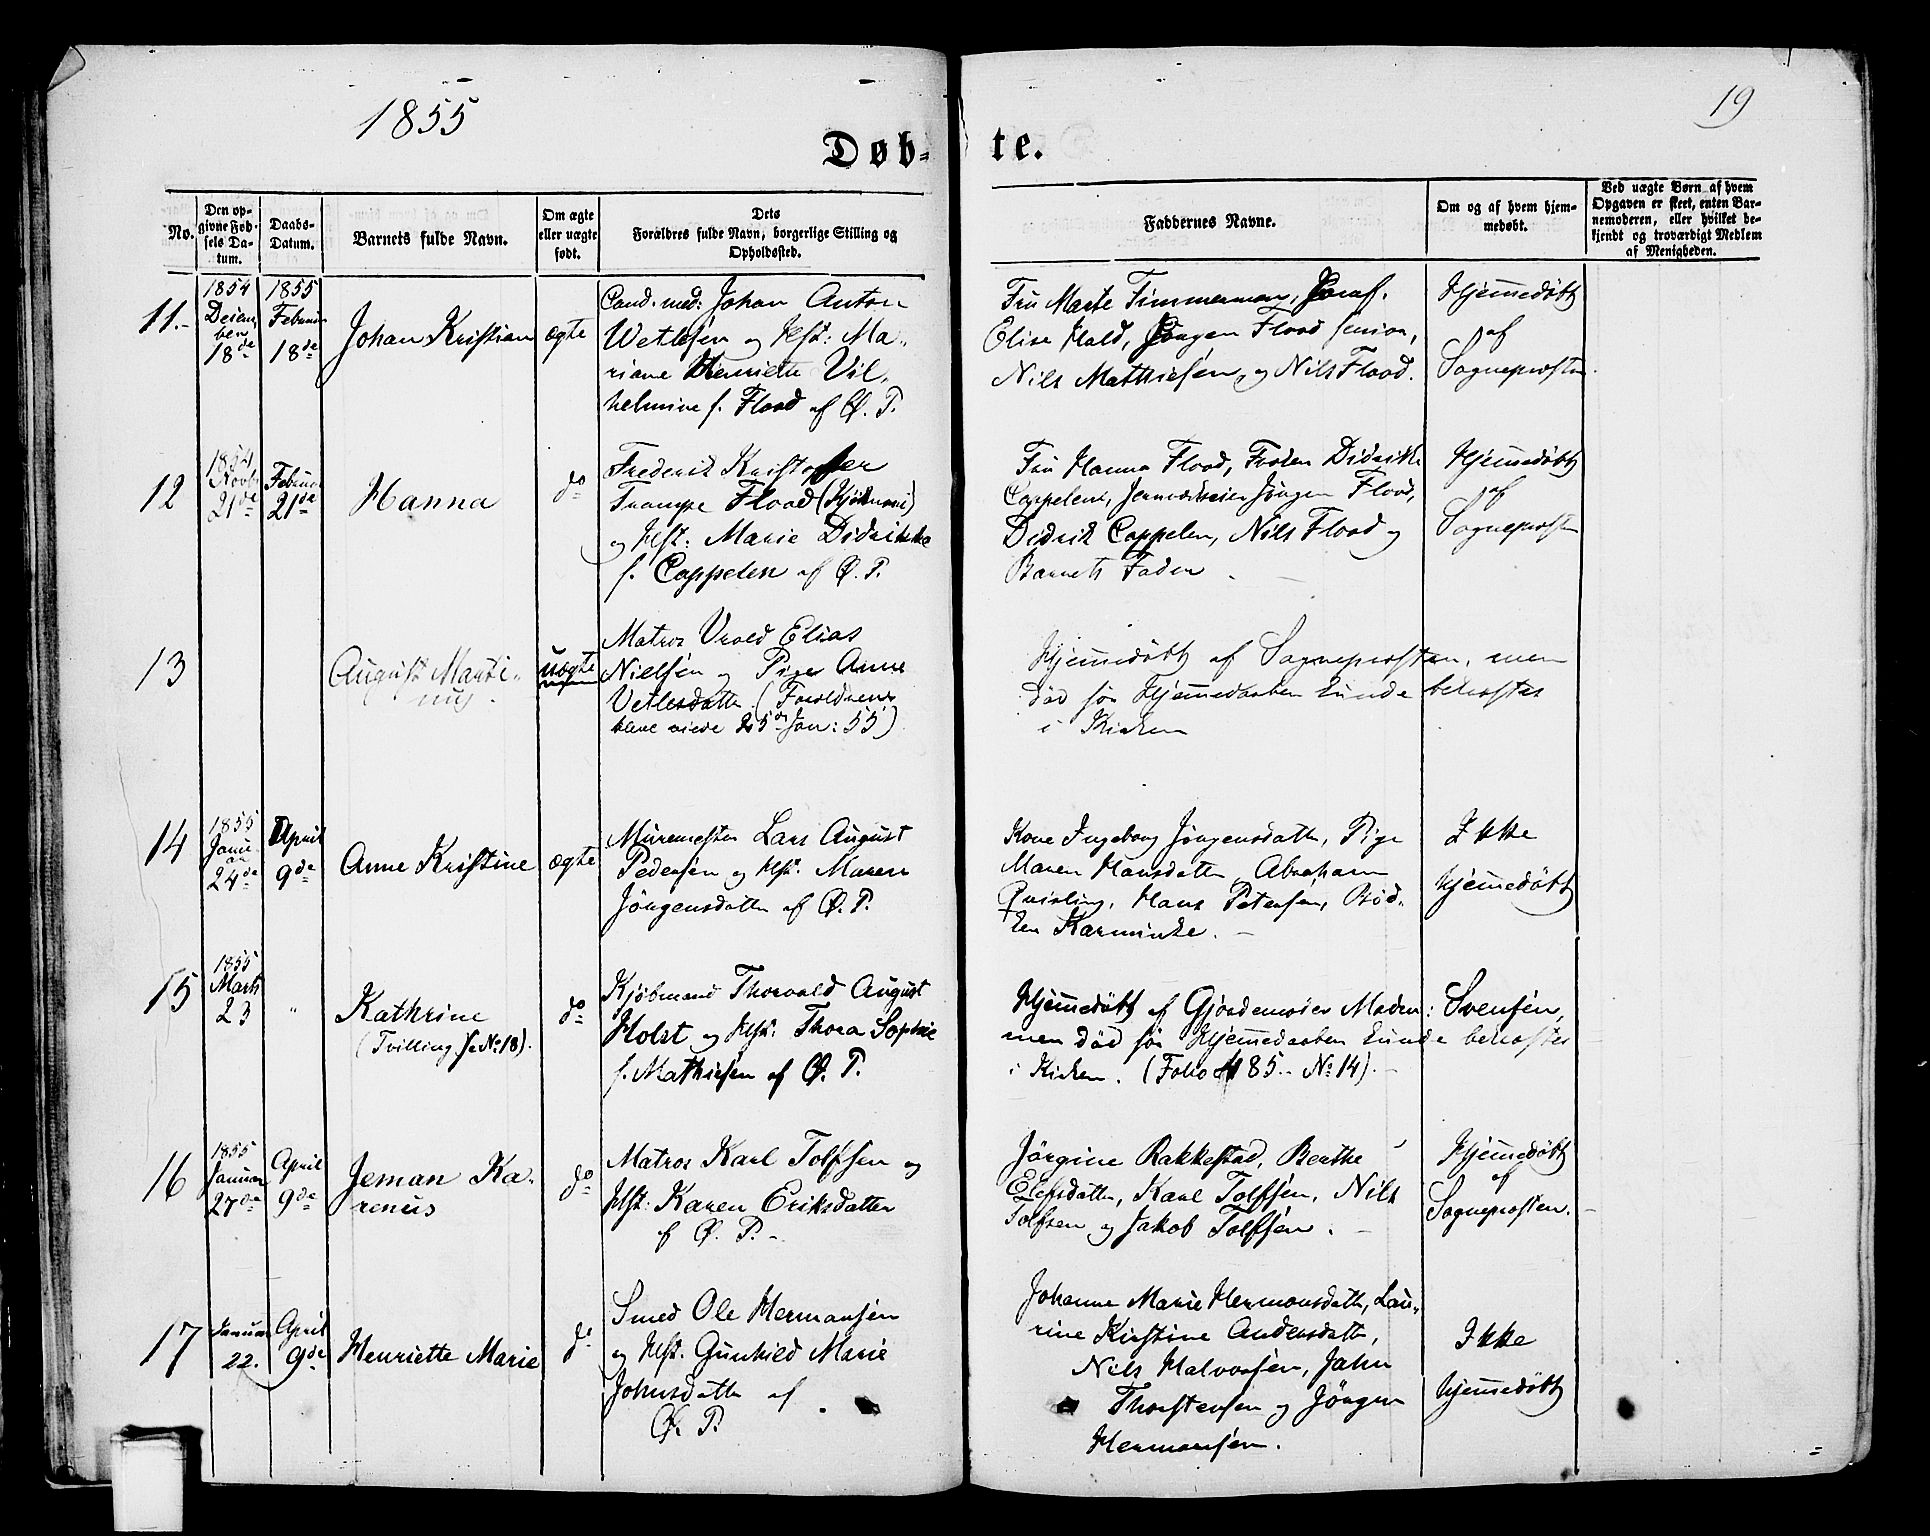 1855
19
Døb-te.
No.
Den op-
givne Fød-
sels Da-
tum.
Daabs-
Datum.
Barnets fulde Navn.
Om ægte
eller uægte
født.
Dets
Forældres fulde Navn, borgerlige Stilling og
Opholdssted.
Faddernes Navne.
Om og af hvem hjem-
medøbt.
Ved uægte Børn af hvem
Opgaven er skeet, enten Bar-
nemoderen, eller hvilket be-
kjendt og troværdigt Medlem
af Menigheden.
11.-
1854
Decem-
ber
18de
1855
Februar
18de
Johan Kristian
ægte
Cand. med: Johan Anton
Wetlesen og Hst: Ma-
riane Henriette Vil-
helmine f. Flood af Ø. P.
Fru Marte Timmerman,
Elise Hald, Jörgen Flood senior,
Nils Matthiesen, og Nils Flood.
Hjemmedöbt
af
Sogneprosten
12
1854
Novbr
21de
Februar
21de
Hanna
do
Frederik Kristoffer
Trampe Flood (Kjöbmand)
og Hst: Marie Didrikke
f. Cappelen af Ø. P.
Fru Hanna Flood, Frøken Didrikke
Cappelen, Jernværkseier Jörgen Flood,
Didrik Cappelen, Nils Flood og
Barnets Fader.
Hjemmedöbt
af
Sogneprosten
13
August Marti-
nus.
uægte
Matros Vrold Elias
Nielsen og Pige Anne
Vetlesdatter. (Forældrene
bleve viede 25de Jan: 55)
Hjemmedöbt af Sogneprosten, men
död för Hjemmedaaben kunde bekræftes
i Kirken
14
1855
Janu-
ar
24de
April
9de
Anne Kristine
ægte
Muremester Lars August
Pedersen og Hst. Maren
Jörgensdatter af Ø. P.
Kone Ingeborg Jörgensdatter, Pige
Maren Hansdatter, Abraham
Qvisling, Hans Petersen, Bød-
ker Karminke.
Ikke
hjemmedöbt
15
1855
Marts
23
"
Kathrine
(Tvilling se No 18).
do
Kjöbmand Thorvald August
Holst og Hst: Thora Sophie
f. Mathiesen af Ø. P.
Hjemmedöbt af Gjordemoder Madm: Svensen,
men död för Hjemmedaaben kunde bekræftes
i Kirken. (Folio 185. No 14).
16
1855
Januar
27de
April
9de
Jeman Ka-
renus
do
Matros Karl Tolfsen og
Hst: Karen Eriksdatter
af Ø. P.
Jörgine Rakkestad, Berthe
Elefsdatter, Karl Tolfsen, Nils
Tolfsen og Jakob Tolfsen.
Hjemmedöbt
af
Sogneprosten.
17
Januar
22.
April
9de
Henriette Marie
do
Smed Ole Hermansen
og Hst. Gunhild Marie
Johnsdatter af
Ø. P.
Johanne Marie Hermansdatter, Lau-
rine Kirstine Andersdatter,
Nils Halvorsen, Jahn
Thorstensen og Jörgen
Hermansen.
Ikke
hjemmedöbt